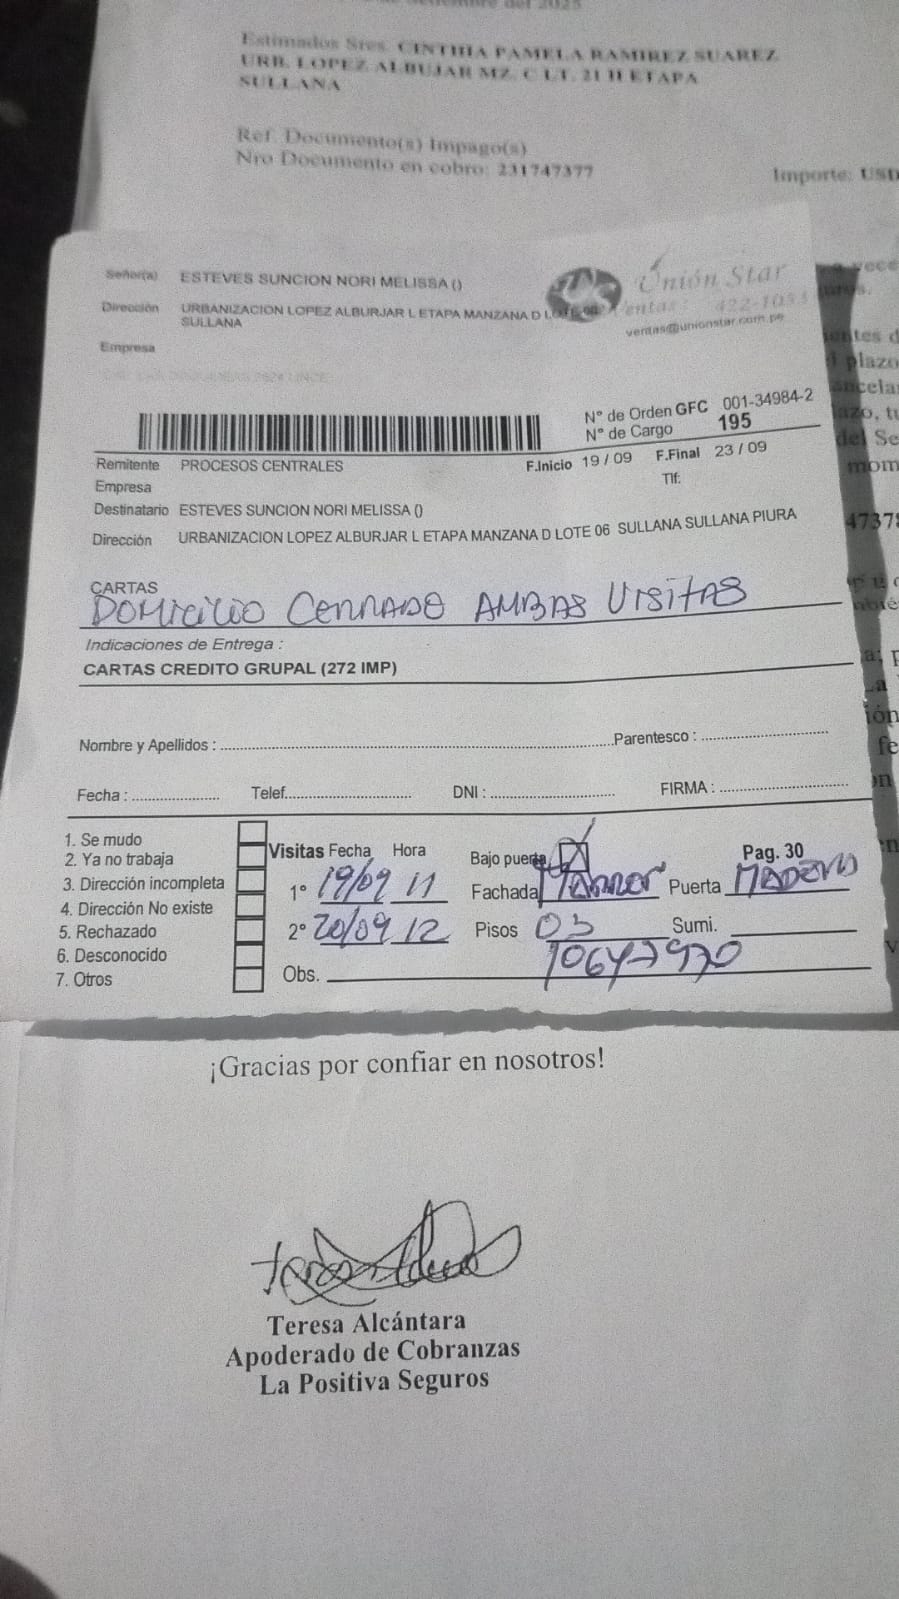 del 2025
Estimados Sres. CINTHIA PAMELA RAMIREZ SUAREZ
URB. LOPEZ ALBUJAR MZ. C LT. 21 II ETAPA
SULLANA
Ref. Documento(s) Impago(s)
Nro Documento en cobro: 231747377
Importe: USD
Señor(a) ESTEVES SUNCION NORI MELISSA ()
Unión Star
Dirección URBANIZACION LOPEZ ALBURJAR L ETAPA MANZANA D LOTE 06
SULLANA
Ventas: 422-1033
ventas@unionstar.com.pe
Empresa
N° de Orden GFC 001-34984-2
N° de Cargo 195
Remitente PROCESOS CENTRALES
F.Inicio 19 / 09 F.Final 23 / 09
Empresa
Tlf:
Destinatario ESTEVES SUNCION NORI MELISSA ()
Dirección URBANIZACION LOPEZ ALBURJAR L ETAPA MANZANA D LOTE 06 SULLANA SULLANA PIURA
CARTAS
DOMICILIO CERRADO AMBAS VISITAS
Indicaciones de Entrega :
CARTAS CREDITO GRUPAL (272 IMP)
Nombre y Apellidos : Parentesco :
Fecha : Telef. DNI : FIRMA :
1. Se mudo
2. Ya no trabaja
3. Dirección incompleta
4. Dirección No existe
5. Rechazado
6. Desconocido
7. Otros
Visitas Fecha Hora
1° 19/09 11
2° 20/09 12
Obs.
Bajo puerta
Pag. 30
Fachada Puerta
Pisos 03 Sumi.
10647970
¡Gracias por confiar en nosotros!
Teresa Alcántara
Apoderado de Cobranzas
La Positiva Seguros